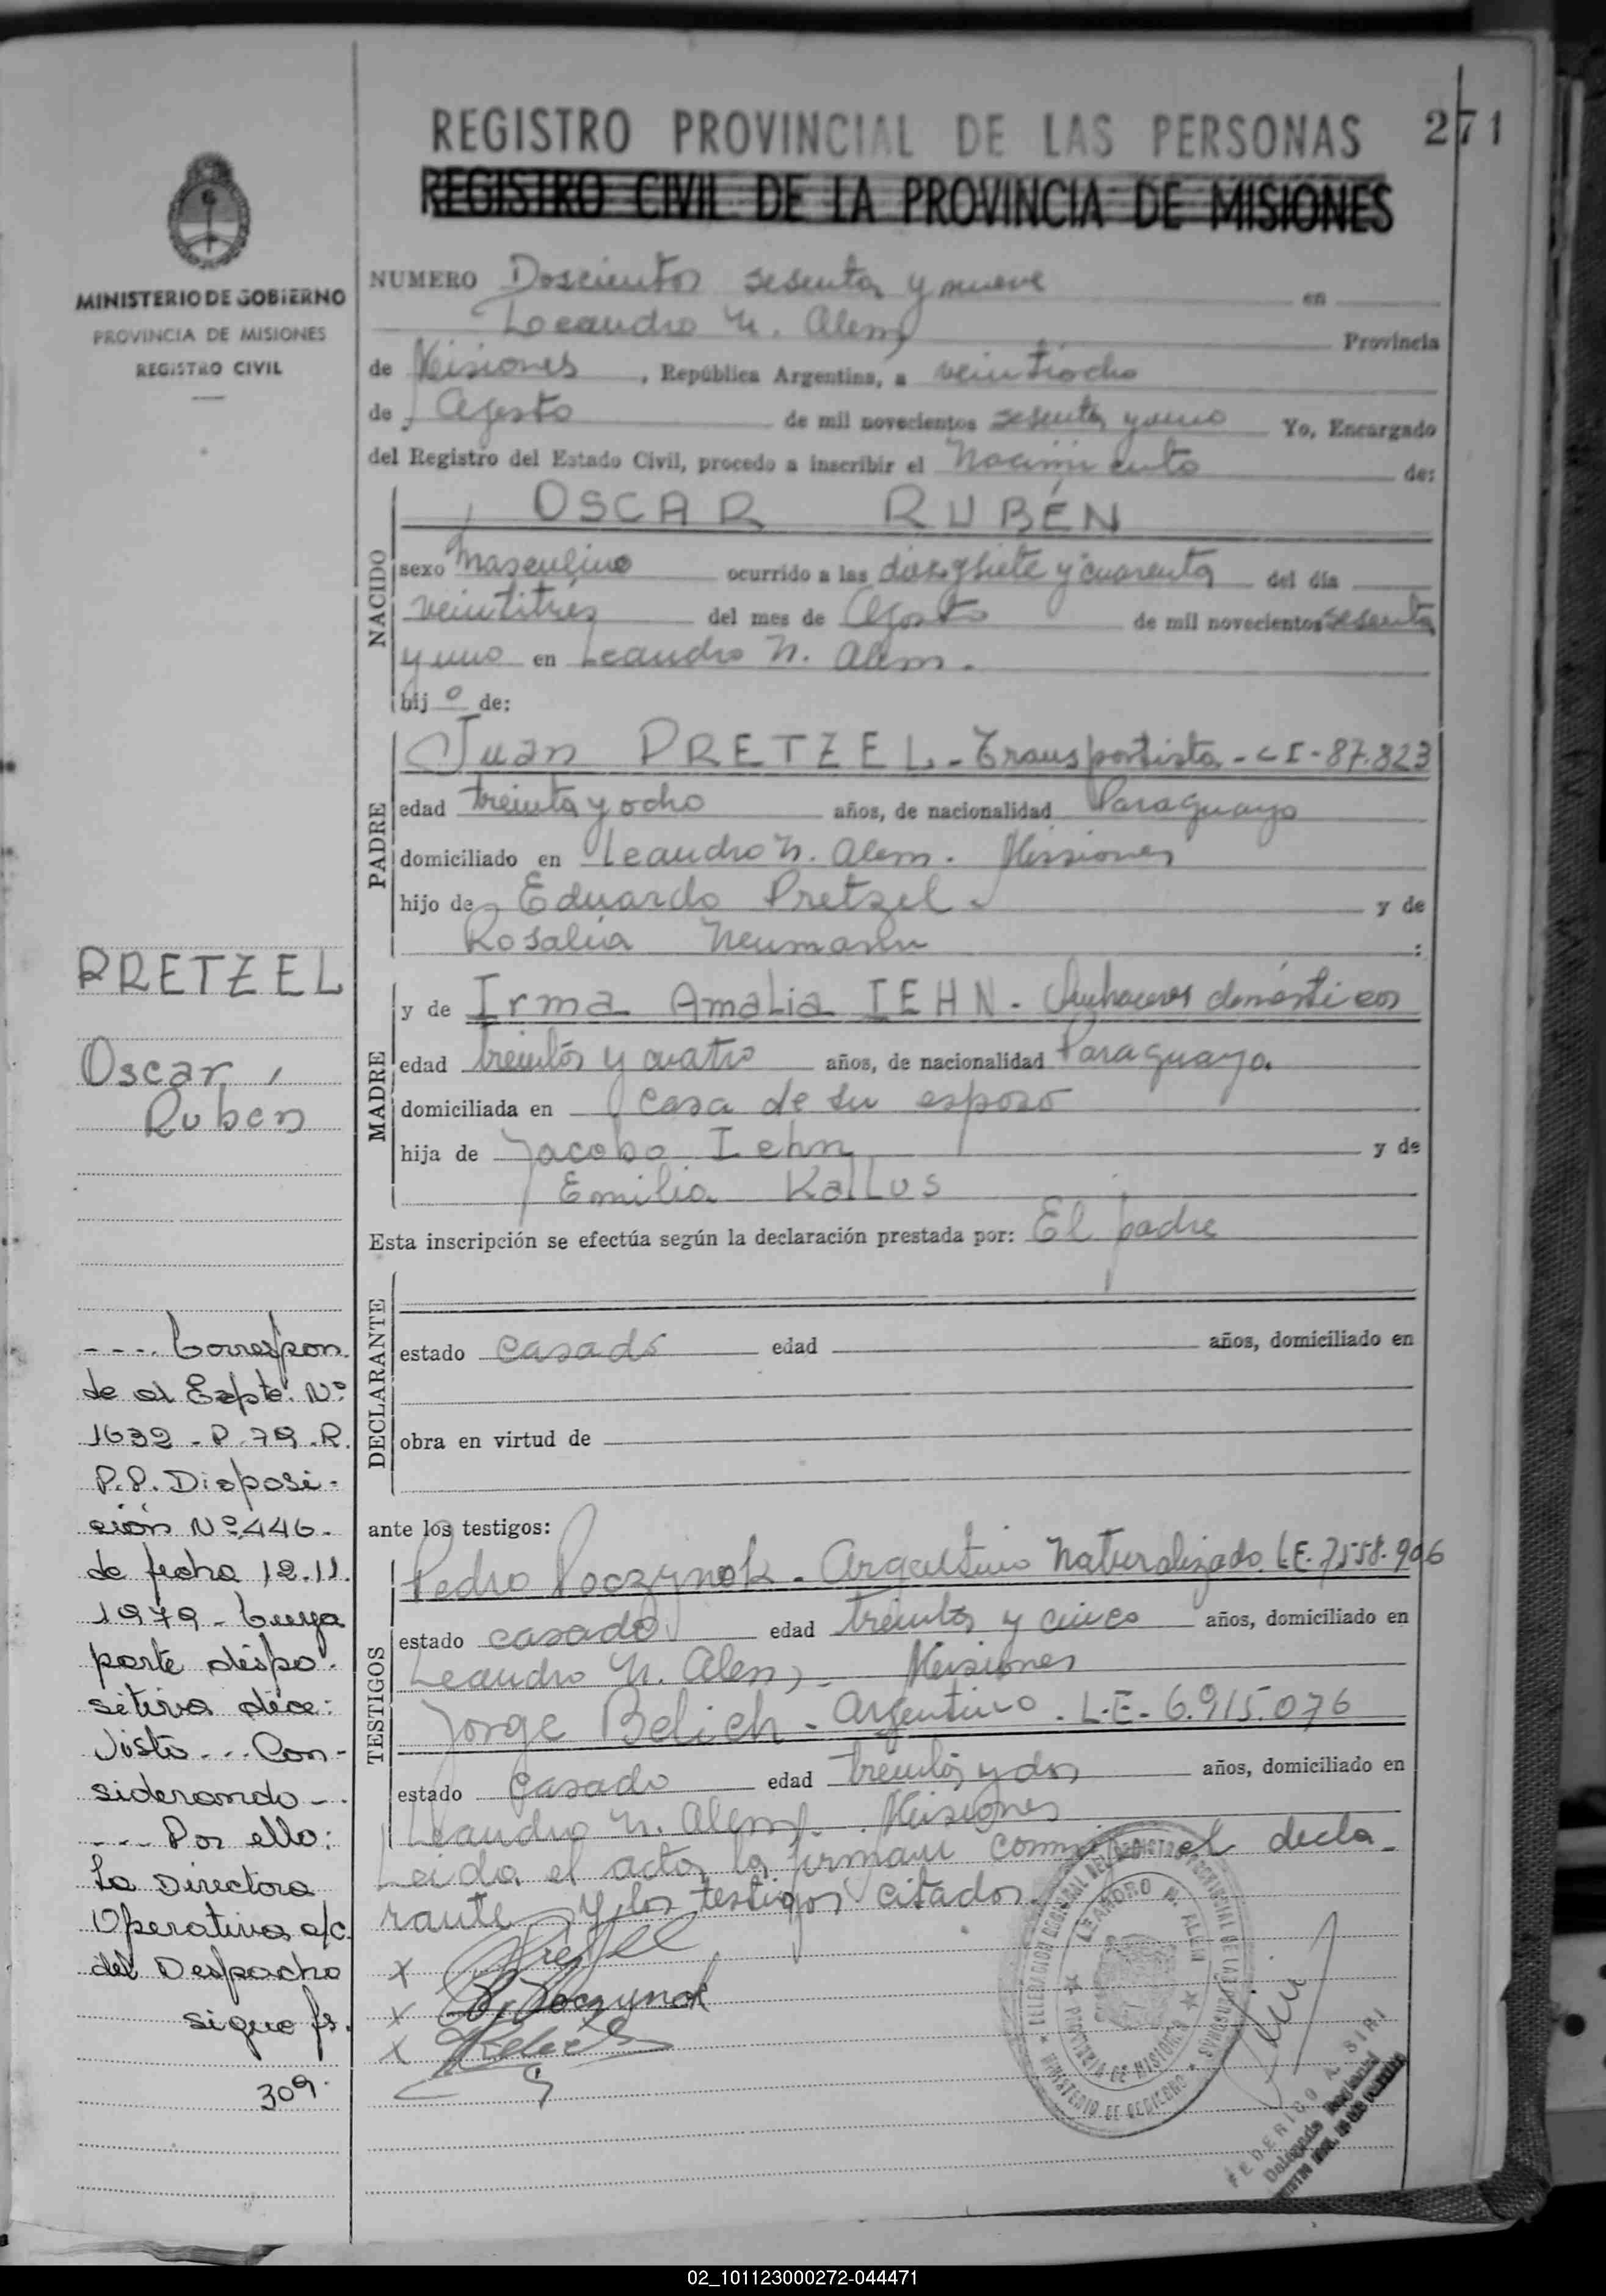 REGISTRO PROVINCIAL DE LAS PERSONAS
271
REGISTRO CIVIL DE LA PROVINCIA DE MISIONES
MINISTERIO DE GOBIERNO
PROVINCIA DE MISIONES
REGISTRO CIVIL
NUMERO Doscientos sesenta y nueve en
Leandro N. Alem Provincia
de Misiones, República Argentina, a veintiocho
de Agosto de mil novecientos sesenta y uno Yo, Encargado
del Registro del Estado Civil, procedo a inscribir el Nacimiento de:
NACIDO
OSCAR RUBÉN
sexo Masculino ocurrido a las diez y siete y cuarenta del día
veintitrés del mes de Agosto de mil novecientos sesenta
y uno en Leandro N. Alem.
hijo de:
PADRE
Juan PRETZEL - Transportista - C I - 87.823
edad treinta y ocho años, de nacionalidad Paraguayo
domiciliado en Leandro N. Alem. Misiones
hijo de Eduardo Pretzel - y de
Rosalia Neumann :
MADRE
y de Irma Amalia IEHN - Quehaceres domésticos
edad treinta y cuatro años, de nacionalidad Paraguaya.
domiciliada en casa de su esposo
hija de Jacobo Iehn y de
Emilia Kallus
Esta inscripción se efectúa según la declaración prestada por: El padre
DECLARANTE
estado casado edad años, domiciliado en
obra en virtud de
ante los testigos:
TESTIGOS
Pedro Poczynok - Argentino Naturalizado L.E. 7.558.906
estado casado edad treinta y cinco años, domiciliado en
Leandro N. Alem, - Misiones
Jorge Belich - Argentino - L.E - 6.915.076
estado casado edad treinta y dos años, domiciliado en
Leandro N. Alem. Misiones
Leida el acta, la firman conmigo el decla-
rante y los testigos citados.
x Pretzel
x P. Poczynok
x JBelich
PRETZEL
Oscar,
Ruben
---- Correspon
de al Expte. Nº
1632 - P. 79 - R.
P.P. Disposi-
ción Nº 446 -
de fecha 12.11.
1979 - Cuya
parte dispo-
sitiva dice:
Visto... Con-
siderando -.
---- Por ello:
La Directora
Operativa a/c
del Despacho
sigue fs.
309.
DELEGACION REGIONAL DEL REGISTRO PROVINCIAL DE LAS PERSONAS
LEANDRO N. ALEM
PROVINCIA DE MISIONES
MINISTERIO DE GOBIERNO
FEDERICO A. SIRI
Delegado Regional
02_101123000272-044471